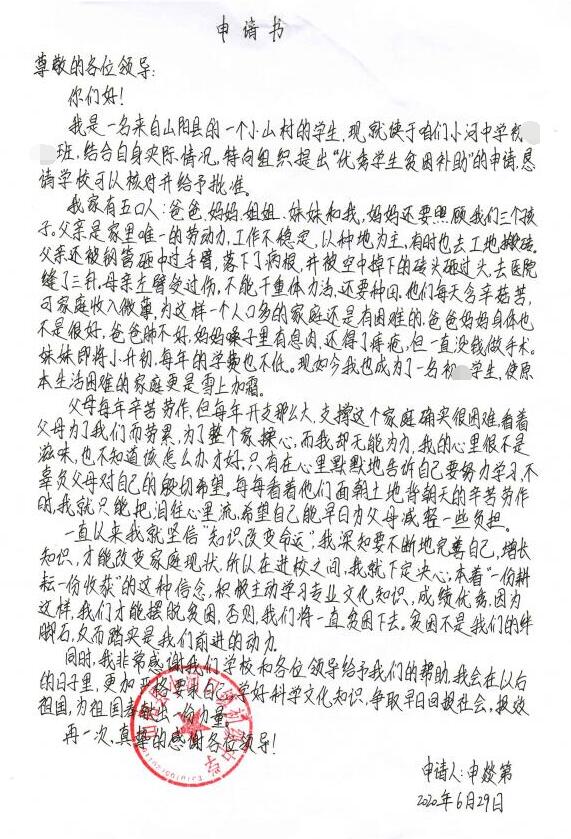 申请书
尊敬的各位领导:
你们好!
我是一名来自山阳县的一个小山村的学生,现就读于咱们小河中学初
班,结合自身实际情况,特向组织提出“优秀学生贫困补助”的申请,恳
请学校可以核对并给予批准。
我家有五口人:爸爸、妈妈、姐姐、妹妹和我,妈妈还要照顾我们三个孩
子。父亲是家里唯一的劳动力,工作不稳定,以种地为主,有时也去工地搬砖。
父亲还被钢管砸中过手臂,落下了病根,并被空中掉下的砖头砸过头,去医院
缝了三针,母亲左臂受过伤,不能干重体力活,还要种田。他们每天含辛茹苦,
可家庭收入微薄,为这样一个人口多的家庭还是有困难的,爸爸妈妈身体也
不是很好,爸爸肺不好,妈妈嗓子里有息肉,还得了痔疮,但一直没钱做手术。
妹妹即将小升初,每年的学费也不低。现如今我也成为了一名初 学生,使原
本生活困难的家庭更是雪上加霜。
父母每年辛苦劳作,但每年开支那么大,支撑这个家庭确实很困难,看着
父母为了我们而劳累,为了整个家操心,而我却无能为力,我的心里很不是
滋味,也不知道该怎么办才好,只有在心里默默地告诉自己要努力学习,不
辜负父母对自己的殷切希望。每每看着他们面朝土地背朝天的辛苦劳作
时,我就只能把泪往心里流,希望自己能早日为父母减轻一些负担。
一直以来我就坚信“知识改变命运”,我深知要不断地完善自己,增长
知识,才能改变家庭现状,所以在进校之间,我就下定决心,本着“一份耕
耘一份收获”的这种信念,积极主动学习专业文化知识,成绩优秀,因为
这样,我们才能摆脱贫困,否则,我们将一直贫困下去。贫困不是我们的绊
脚石,反而踏实是我们前进的动力。
同时,我非常感谢我们学校和各位领导给予我们的帮助,我会在以后
的日子里,更加严格要求自己,学好科学文化知识,争取早日回报社会,报效
祖国,为祖国奉献出一份力量。
再一次,真挚的感谢各位领导!
申请人:申燚第
2020年6月29日